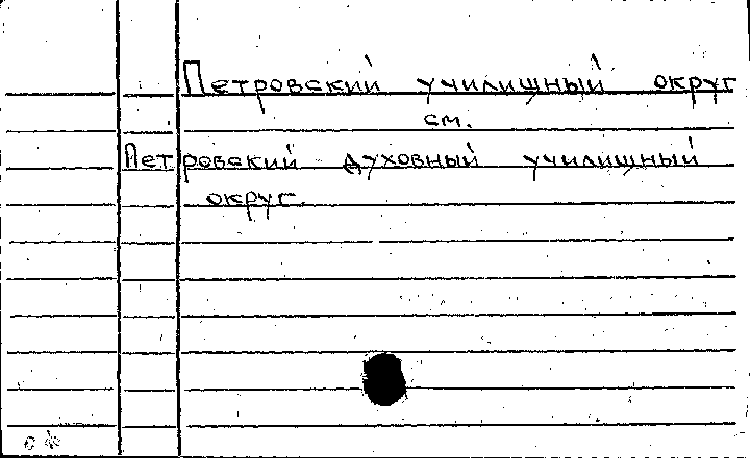 Петровский училищный округ
см.
Петровский духовный училищный
округ.